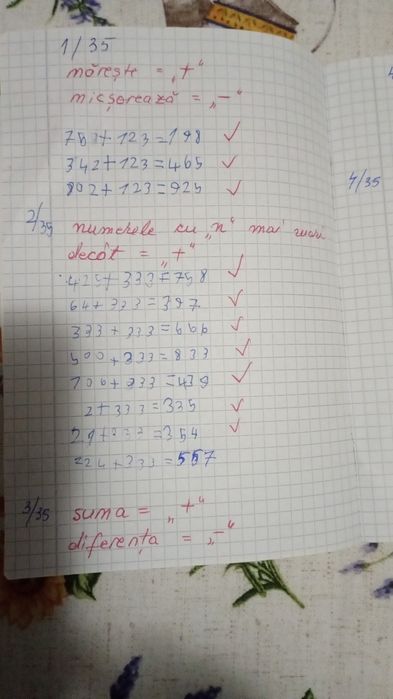 1/35
mărește = „+“
micșorează = „–“
342 + 123 = 465 ✓
802 + 123 = 925 ✓
2/35
numerele cu „n“ mai
decât = „+“
425 + 333 = 758 ✓
64 + 333 = 397 ✓
333 + 333 = 666 ✓
500 + 333 = 833 ✓
+ 333 = 439 ✓
2 + 333 = 335 ✓
= 354 ✓
224 + 333 = 557
3/35
suma = „+“
diferența = „–“
4/35